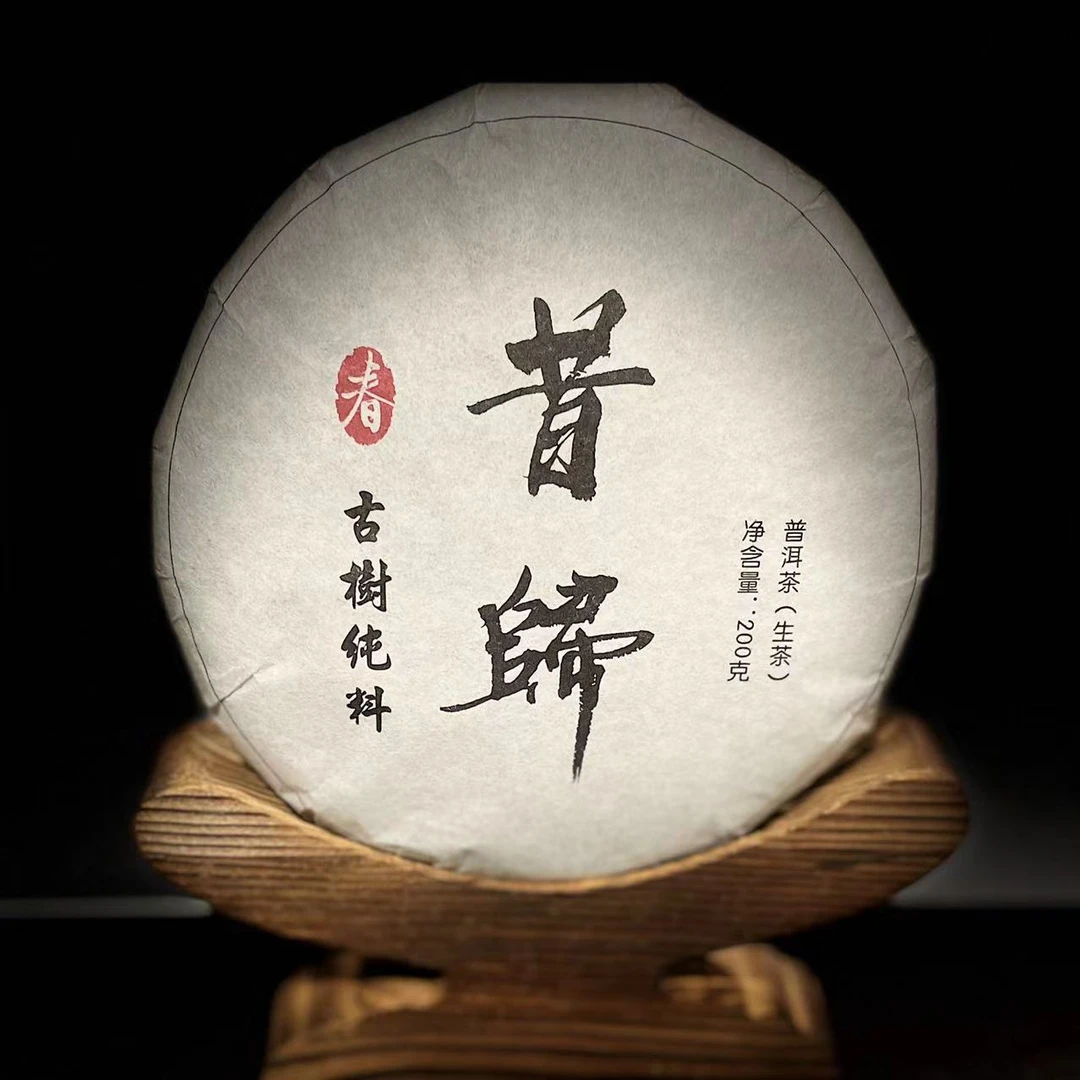 普洱茶（生茶）
净含量：200克
昔歸
春
古樹纯料